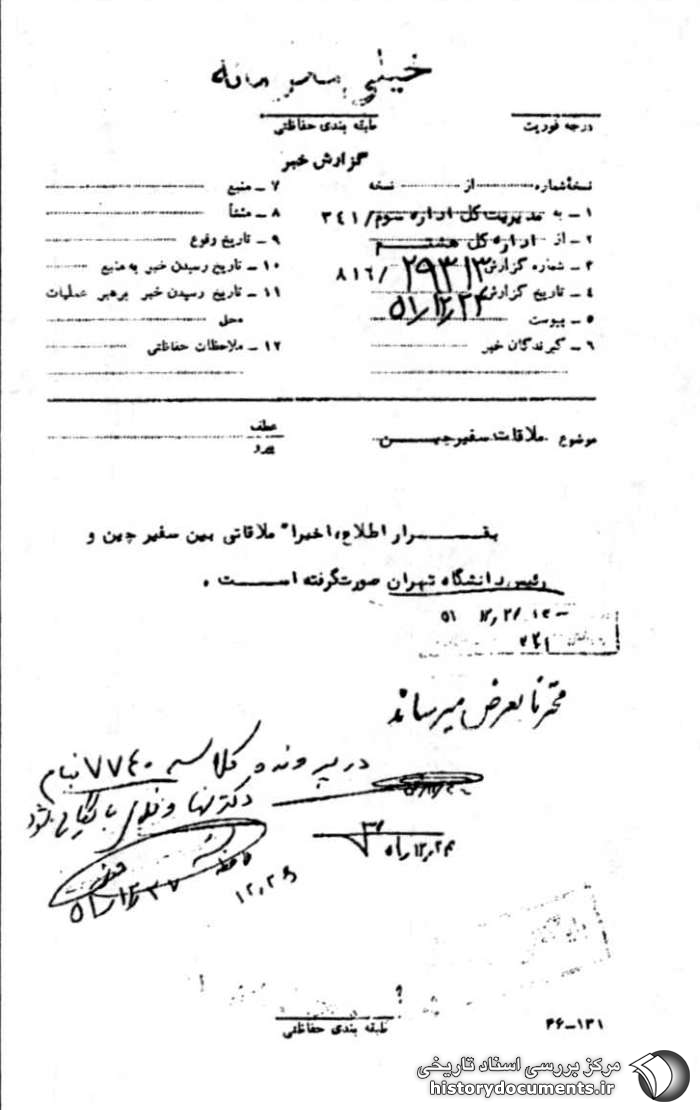 خیلی محرمانه
درجه فوریت
طبقه بندی حفاظتی
گزارش خبر
نسخهٔ شماره از نسخه
۱ ـ به مدیریت کل اداره سوم/ ۳۴۱
۲ ـ از اداره کل هشتـم
۳ ـ شماره گزارش ۲۹۳۱۳ /۸۱۶
۴ ـ تاریخ گزارش ۵۱/۱۲/۲۲
۵ ـ پیوست
۶ ـ گیرندگان خبر
۷ ـ منبع
۸ ـ منشأ
۹ ـ تاریخ وقوع
۱۰ ـ تاریخ رسیدن خبر به منبع
۱۱ ـ تاریخ رسیدن خبر برهبر عملیات
محل
۱۲ ـ ملاحظات حفاظتی
موضوع ملاقات سفیر چیـن
عطف
پیرو
بقـرار اطلاع، اخیراً ملاقاتی بین سفیر چین و
رئیس دانشگاه تهران صورت گرفته اسـت .
محترما بعرض میرساند
در پرونده کلاسه ۷۷۴۰ بنام
دکتر نهاوندی بایگانی شود
۵۱/۱۲/۲۴
۱۲/۲۶
۵۱/۱۲/۲۷
طبقه بندی حفاظتی
۳۶-۱۳۱
مرکز بررسی اسناد تاریخی
historydocuments.ir